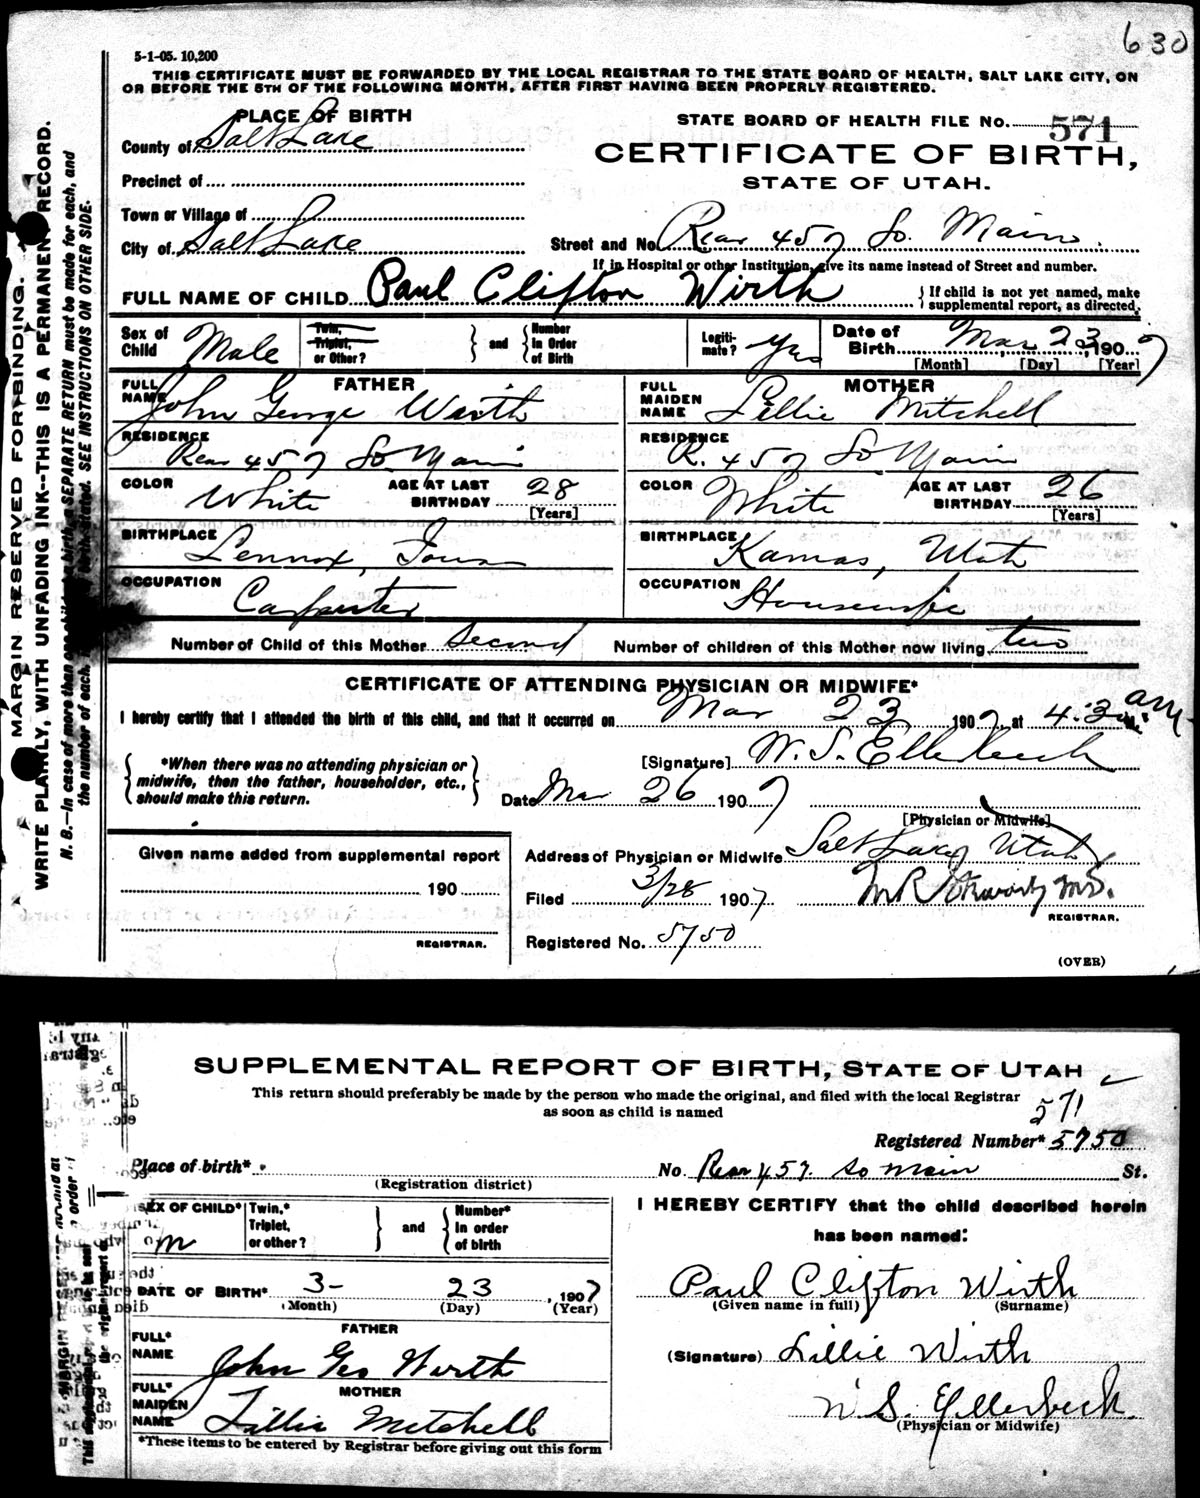 630
5-1-05. 10,200
THIS CERTIFICATE MUST BE FORWARDED BY THE LOCAL REGISTRAR TO THE STATE BOARD OF HEALTH, SALT LAKE CITY, ON
OR BEFORE THE 5TH OF THE FOLLOWING MONTH, AFTER FIRST HAVING BEEN PROPERLY REGISTERED.
PLACE OF BIRTH
STATE BOARD OF HEALTH FILE NO. 571
County of Salt Lake
CERTIFICATE OF BIRTH,
STATE OF UTAH.
Precinct of
Town or Village of
City of Salt Lake
Street and No. Rear 457 So. Main.
If in Hospital or other Institution, give its name instead of Street and number.
FULL NAME OF CHILD Paul Clifton Wirth
{ If child is not yet named, make
supplemental report, as directed.
Sex of Child Male
Twin, Triplet, or Other?
} and { Number in Order of Birth
Legiti-mate? Yes
Date of Birth Mar 23, 1907
[Month] [Day] [Year]
FATHER
FULL NAME John George Wirth
MOTHER
FULL MAIDEN NAME Lillie Mitchell
RESIDENCE Rear 457 So. Main
RESIDENCE R. 457 So. Main
COLOR White
AGE AT LAST BIRTHDAY 28 [Years]
COLOR White
AGE AT LAST BIRTHDAY 26 [Years]
BIRTHPLACE Lennox, Iowa
BIRTHPLACE Kamas, Utah
OCCUPATION Carpenter
OCCUPATION Housewife
Number of Child of this Mother second
Number of children of this Mother now living two
CERTIFICATE OF ATTENDING PHYSICIAN OR MIDWIFE*
I hereby certify that I attended the birth of this child, and that it occurred on Mar 23 1907, at 4:30 am
*When there was no attending physician or
midwife, then the father, householder, etc.,
should make this return.
[Signature] W. S. Ellerbeck
Date Mar 26 1907
[Physician or Midwife]
Given name added from supplemental report
190
REGISTRAR.
Address of Physician or Midwife Salt Lake Utah
Filed 3/28 1907
REGISTRAR.
Registered No. 5750
(OVER)
MARGIN RESERVED FOR BINDING.
WRITE PLAINLY, WITH UNFADING INK--THIS IS A PERMANENT RECORD.
N. B.—In case of more than one child at a birth, a SEPARATE RETURN must be made for each, and
the number of each, SEE INSTRUCTIONS ON OTHER SIDE.
SUPPLEMENTAL REPORT OF BIRTH, STATE OF UTAH
This return should preferably be made by the person who made the original, and filed with the local Registrar
as soon as child is named
571
Registered Number* 5750
Place of birth*
(Registration district)
No. Rear 457. So Main St.
SEX OF CHILD* m
Twin,* Triplet, or other?
} and { Number* In order of birth
DATE OF BIRTH* 3- 23, 1907
(Month) (Day) (Year)
FATHER
FULL* NAME John Geo Wirth
MOTHER
FULL* MAIDEN NAME Lillie Mitchell
*These items to be entered by Registrar before giving out this form
I HEREBY CERTIFY that the child described herein
has been named:
Paul Clifton Wirth
(Given name in full) (Surname)
(Signature) Lillie Wirth
W. S. Ellerbeck.
(Physician or Midwife)